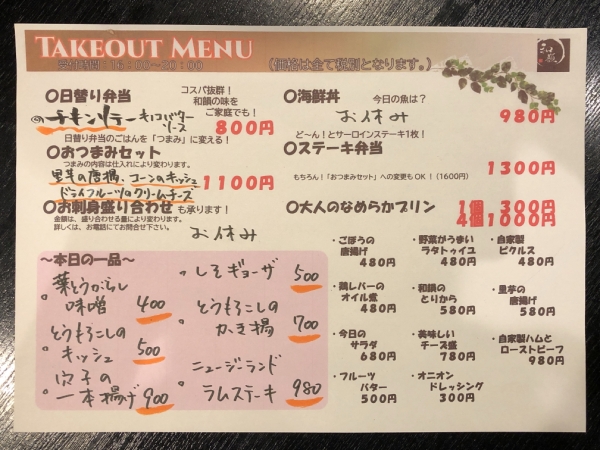 TAKEOUT MENU
受付時間：16：00～20：00
（価格は全て税別となります。）
和韻
〇日替り弁当
コスパ抜群！
和韻の味を
ご家庭でも！
チキンソテー
キノコバター
ソース
800円
日替り弁当のごはんを「つまみ」に変える！
〇おつまみセット
つまみの内容は仕入れにより変わります。
里芋の唐揚、コーンのキッシュ
ドライフルーツのクリームチーズ
1100円
〇お刺身盛り合わせも承ります！
金額は、盛り合わせる量により変わります。
詳しくは、お電話にてお問合せ下さい。
お休み
〇海鮮丼
今日の魚は？
お休み
980円
ど～ん！とサーロインステーキ1枚！
〇ステーキ弁当
1300円
もちろん！「おつまみセット」への変更もOK！（1600円）
〇大人のなめらかプリン
1個 300円
4個1000円
～本日の一品～
・葉とうがらし
味噌 400
・とうもろこしの
キッシュ 500
・穴子の
一本揚げ 900
・しそギョーザ 500
・とうもろこしの
かき揚 700
・ニュージーランド
ラムステーキ 980
・ごぼうの
唐揚げ
480円
・鶏レバーの
オイル煮
480円
・今日の
サラダ
680円
・フルーツ
バター
500円
・野菜がうまい
ラタトゥイユ
480円
・和韻の
とりから
580円
・美味しい
チーズ盛
780円
・オニオン
ドレッシング
300円
・自家製
ピクルス
480円
・里芋の
唐揚げ
580円
・自家製ハムと
ローストビーフ
980円